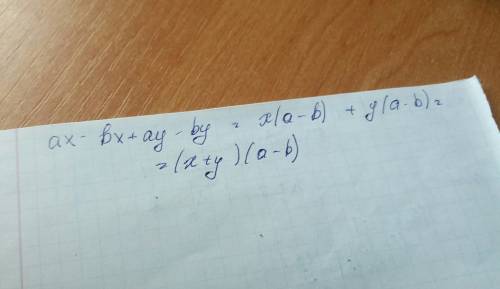 ax - bx + ay - by = x(a-b) + y(a-b) =
= (x+y)(a-b)